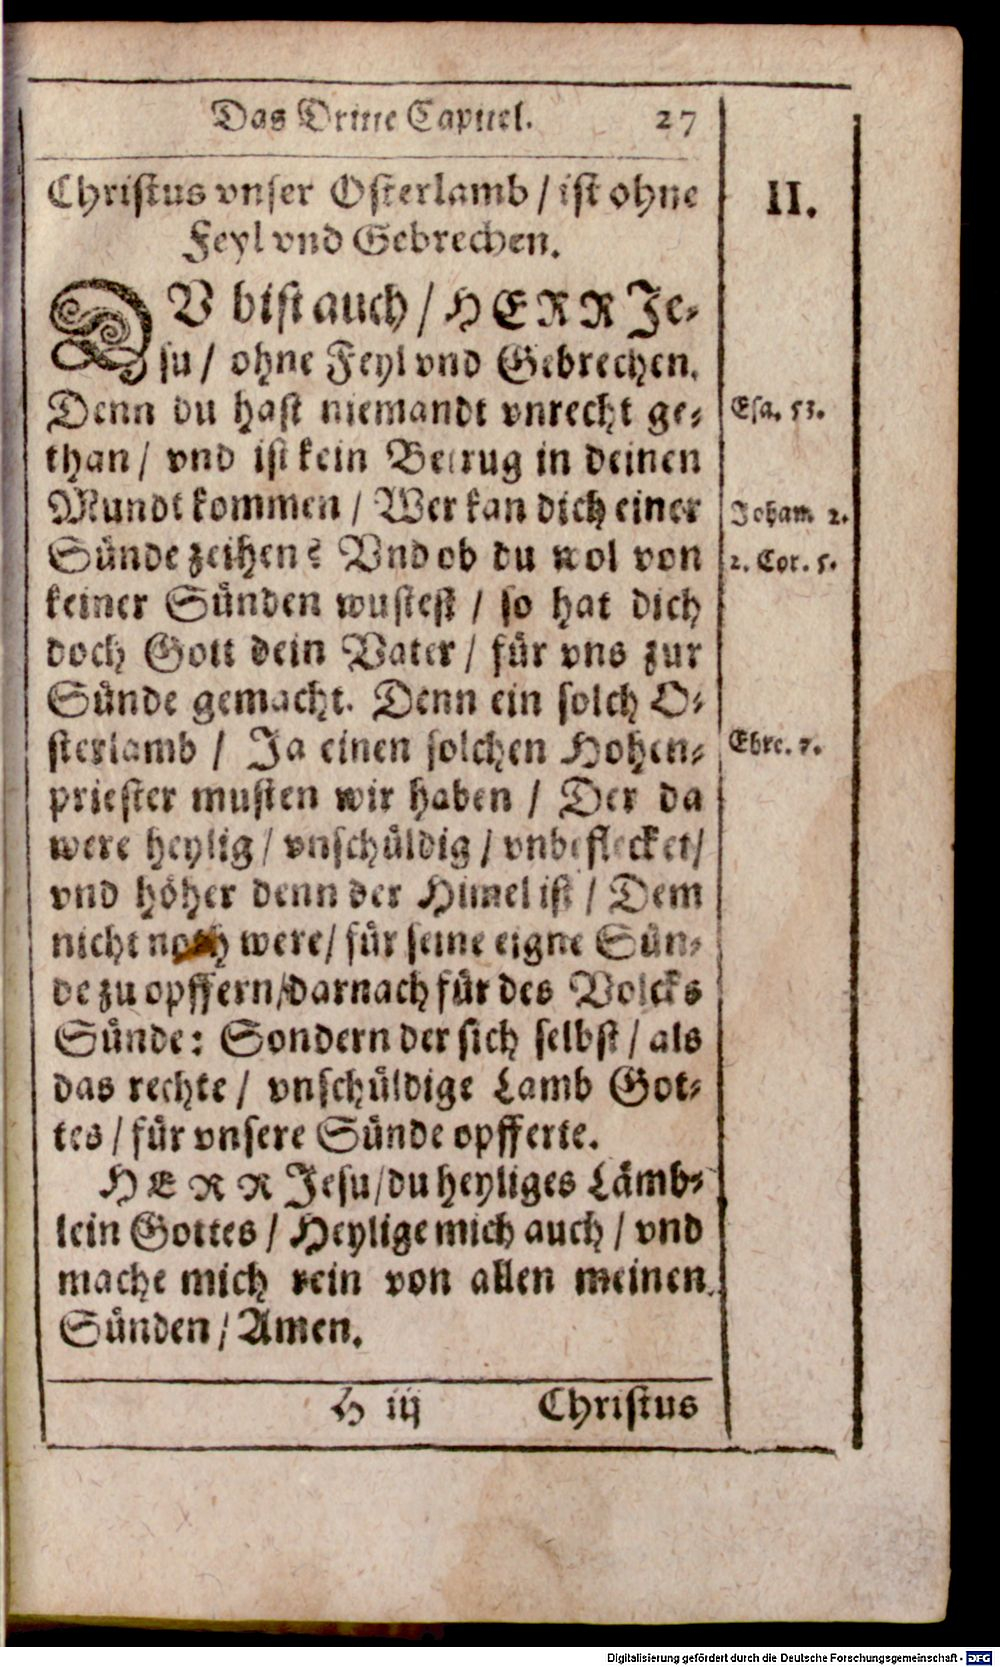 Das Dritte Capittel. 27
Christus vnser Osterlamb / ist ohne
Feyl vnd Gebrechen.
II.
DV bist auch / HERR Je-
su / ohne Feyl vnd Gebrechen.
Denn du hast niemandt vnrecht ge-
Esa. 53.
than / vnd ist kein Betrug in deinen
Mundt kommen / Wer kan dich einer
Joham 2.
Sünde zeihen? Vnd ob du wol von
2. Cor. 5.
keiner Sünden wustest / so hat dich
doch Gott dein Vater / für vns zur
Sünde gemacht. Denn ein solch O-
sterlamb / Ja einen solchen Hohen-
Ebre. 7.
priester musten wir haben / Der da
were heylig / vnschüldig / vnbeflecket /
vnd höher denn der Himel ist / Dem
nicht noth were / für seine eigne Sün-
de zu opffern / darnach für des Volcks
Sünde: Sondern der sich selbst / als
das rechte / vnschüldige Lamb Got-
tes / für vnsere Sünde opfferte.
HERR Jesu / du heyliges Lämb-
lein Gottes / Heylige mich auch / vnd
mache mich rein von allen meinen
Sünden / Amen.
H iij Christus
Digitalisierung gefördert durch die Deutsche Forschungsgemeinschaft - DFG